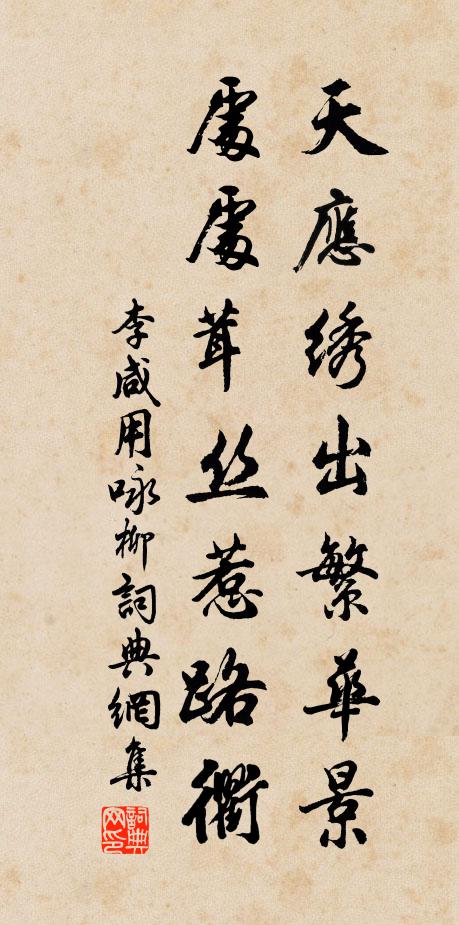 天應绣出繁華景
處處茸丝惹路衢
李咸用咏柳詞典網集
詞典网印